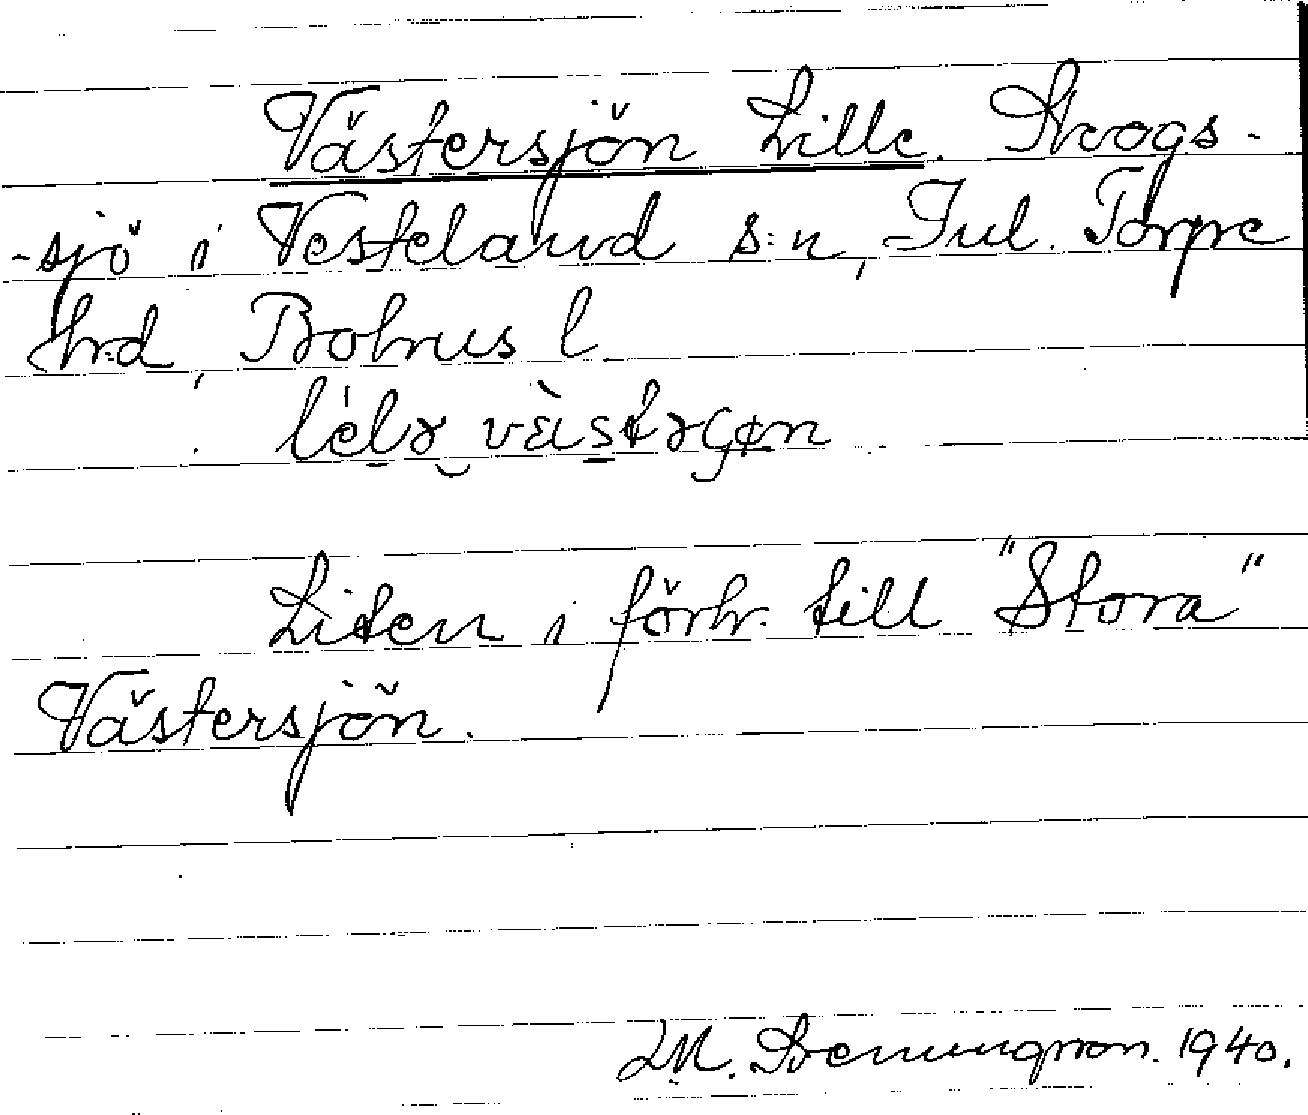 Västersjön Lille. Skogs-
-sjö i Vesteland s:n, Inl. Torpe
hrd, Bohus l.
lélɘ vàstɘrçøn
Liten i förh. till "Stora"
Västersjön.
M. 1940.